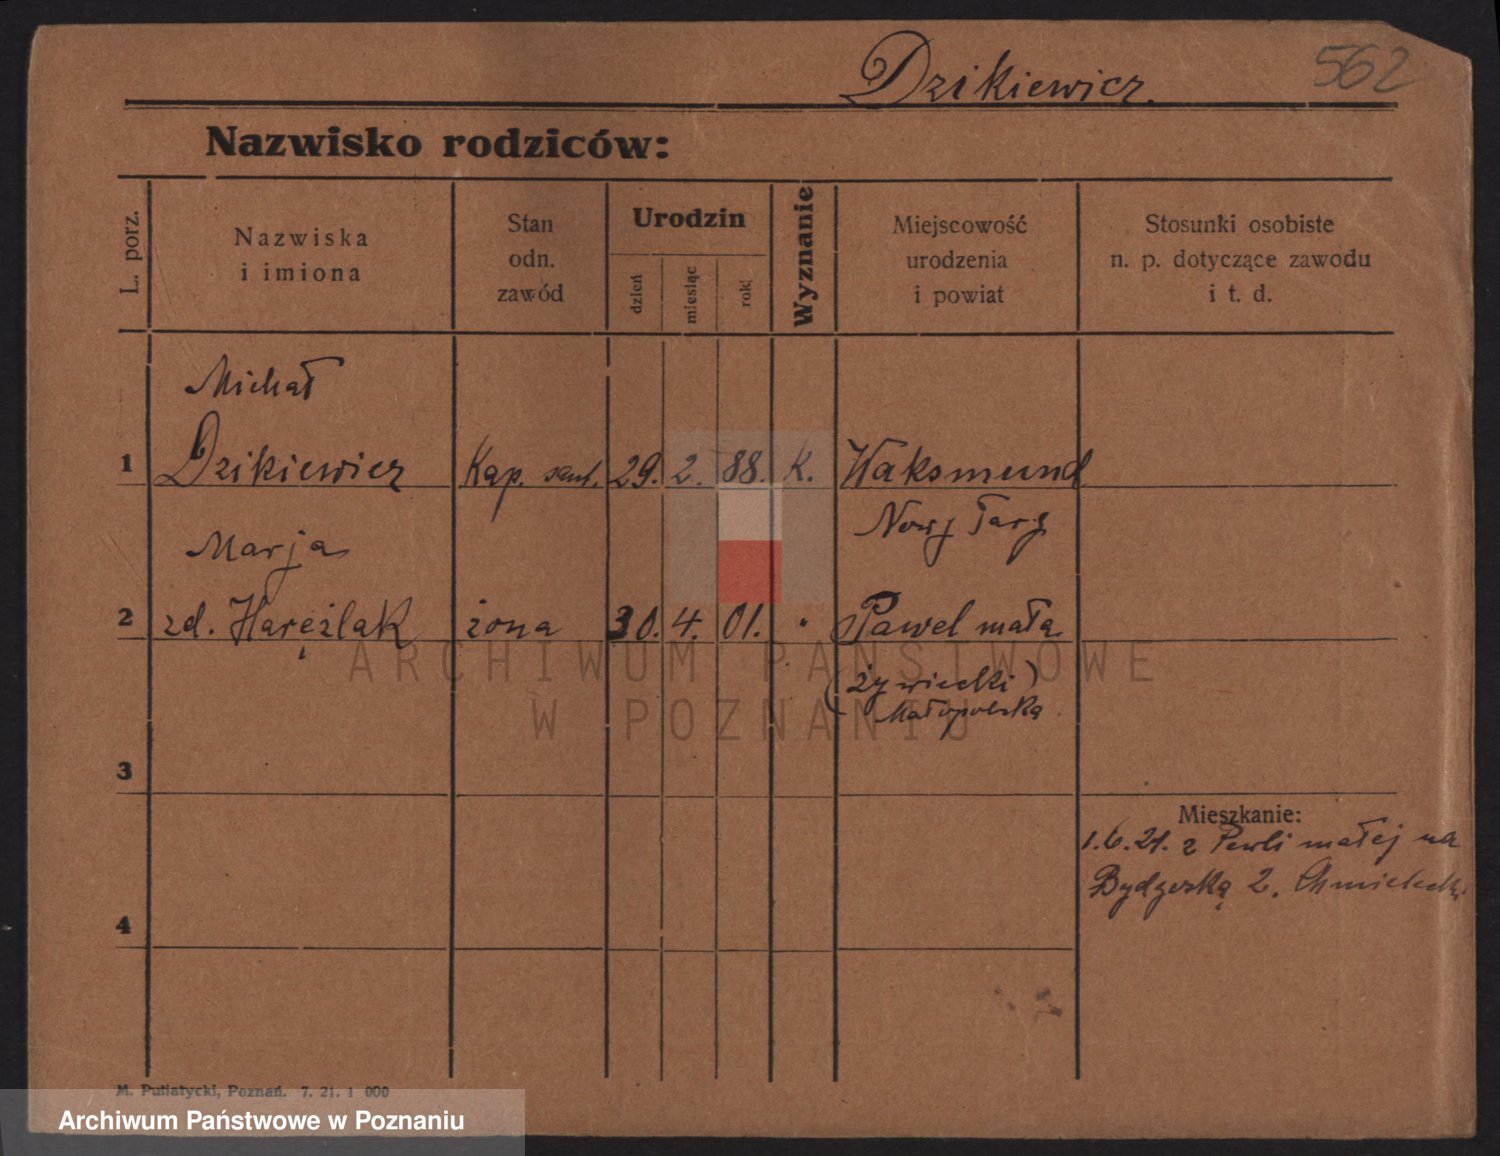 Dzikiewicz.
562
Nazwisko rodziców:
L. porz.
Nazwiska
i imiona
Stan
odn.
zawód
Urodzin
dzień
miesiąc
rok
Wyznanie
Miejscowość
urodzenia
i powiat
Stosunki osobiste
n. p. dotyczące zawodu
i t. d.
Michał
1 Dzikiewicz Kap. sant. 29. 2. 88. K. Waksmund
Nowy Targ
Marja
2 zd. Haręźlak żona 30. 4. 01. " Pawel mała
(żywiecki)
Małopolska
3
Mieszkanie:
1.6.21. z Pewli małej na
Bydgoską 2.
4
ARCHIWUM PAŃSTWOWE
W POZNANIU
M. Putiatycki, Poznań. 7. 21. 1 000
Archiwum Państwowe w Poznaniu